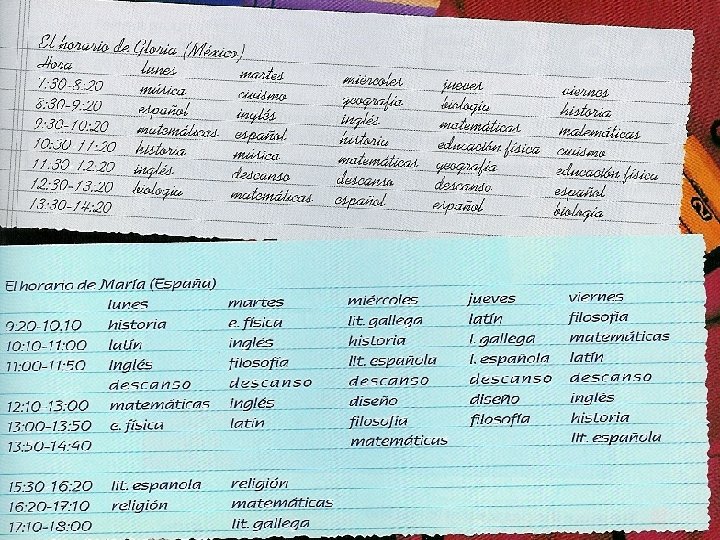 El horario de Gloria (México)
Hora lunes martes miércoles jueves viernes
7:30-8:20 música civismo geografía biología historia
8:30-9:20 español inglés inglés matemáticas matemáticas
9:30-10:20 matemáticas español historia educación física civismo
10:30-11:20 historia música matemáticas geografía educación física
11:30-12:20 inglés descanso descanso descanso español
12:30-13:20 biología matemáticas español español biología
13:30-14:20
El horario de María (España)
lunes martes miércoles jueves viernes
9:20-10:10 historia e. física lit. gallega latín filosofía
10:10-11:00 latín inglés historia l. gallega matemáticas
11:00-11:50 inglés filosofía lit. española l. española latín
descanso descanso descanso descanso descanso
12:10-13:00 matemáticas inglés diseño diseño inglés
13:00-13:50 e. física latín filosofía filosofía historia
13:50-14:40 matemáticas lit. española
15:30-16:20 lit. española religión
16:20-17:10 religión matemáticas
17:10-18:00 lit. gallega